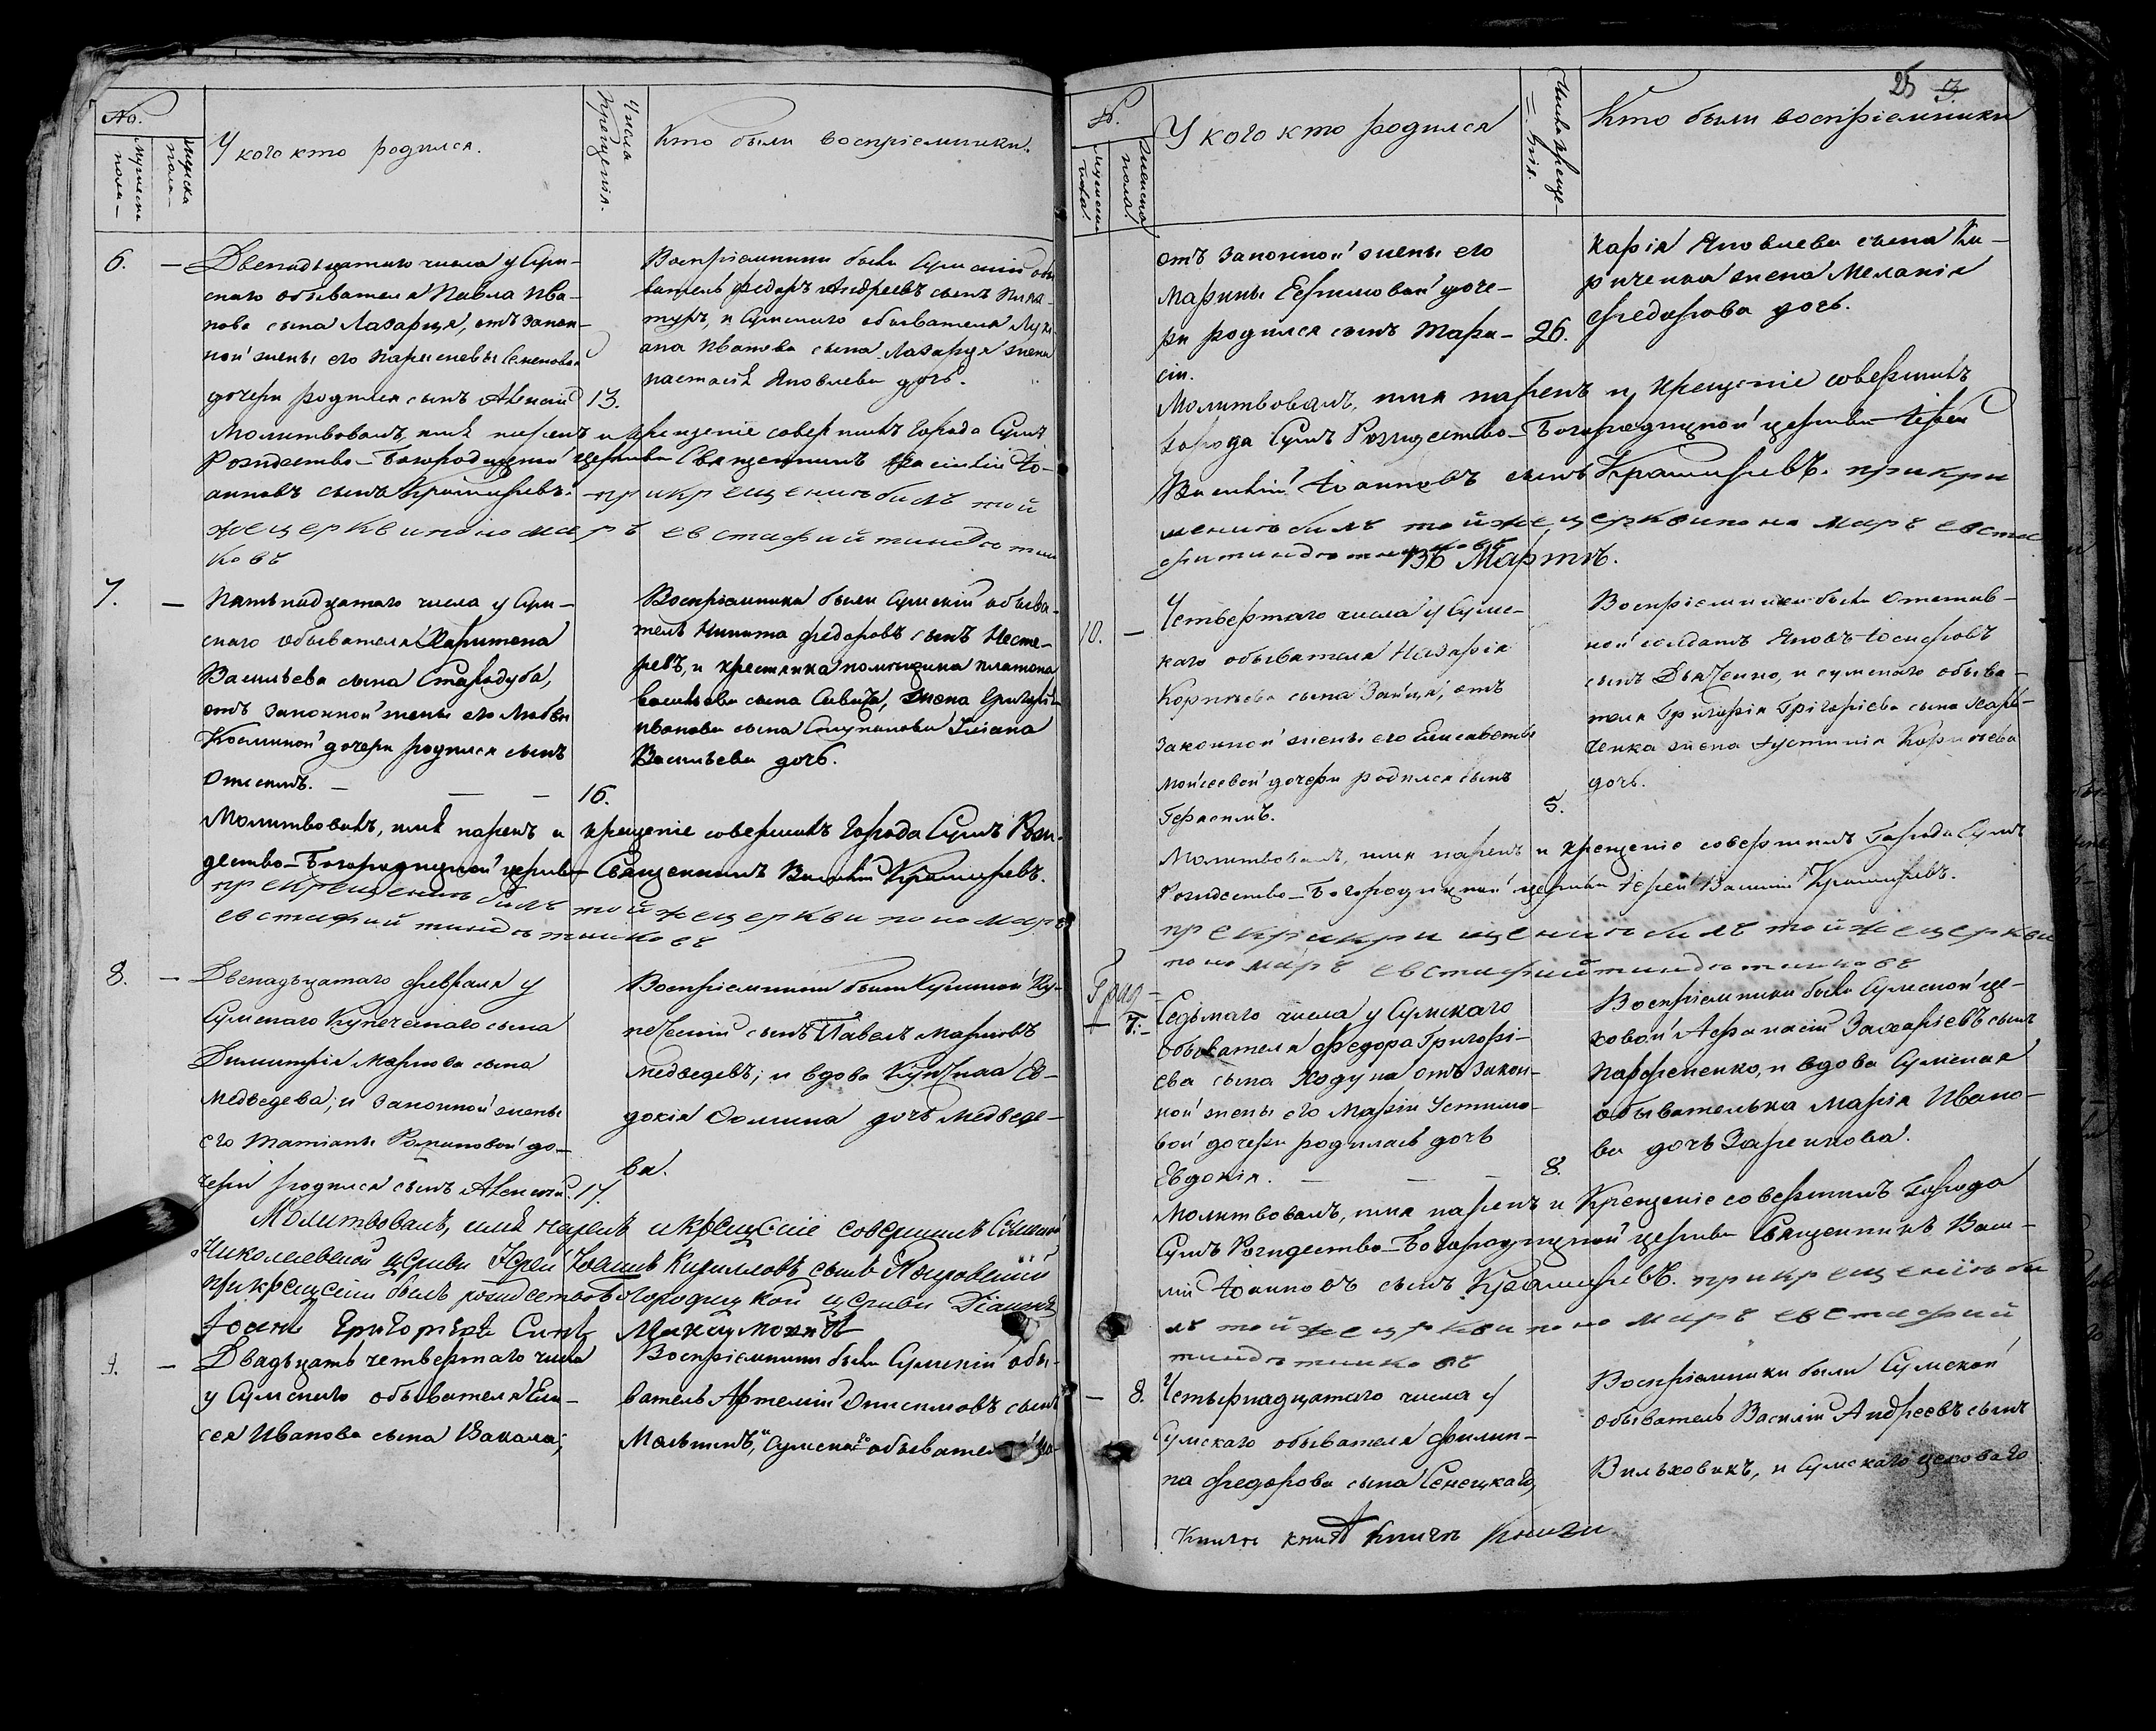 No.
мужеска пола
женска пола
У кого кто родился.
Числа Крещенія.
Кто были воспріемники.
6. —
Двенадцатаго числа у Сум-
скаго обывателя Павла Ива-
нова сына Лазарця, отъ закон-
ной жены его Параскевы Семеновой
дочери родился сынъ Алексій 13.
Воспріемники были Сумскій обы-
ватель Федоръ Андреевъ сынъ
и Сумскаго обывателя Луки-
ана Иванова сына Лазарця жена
Настасія Яковлева дочь.
Молитвовалъ, имя нарекъ и крещеніе совершилъ Города Сумъ
Рождество-Богородицкой церкви Священникъ Василій Іо-
анновъ сынъ Крамаревъ. при крещению билъ той
же церкви пономаръ евстафий
7. —
Пятьнадцатаго числа у Сум-
скаго обывателя Харитона
Васильева сына Стародуба,
отъ законной жены его Любви
Косминой дочери родился сынъ
Онисимъ. — — — 16.
Воспріемники были Сумскій обыва-
тель Никита Федоровъ сынъ Несте-
ревъ, и крестянка помещика Платона
Васильева сына Савича, жена Григорія
Иванова сына Ступакова Уліана
Васильева дочь.
Молитвовалъ, имя нарекъ и крещеніе совершилъ Города Сумъ Рож-
дество-Богородицкой церкви Священникъ Василій Крамаревъ.
при крещению билъ той же церкви пономаръ
евстафий
8. —
Двенадцатаго февраля у
Сумскаго Купеческаго сына
Димитрія Маркова сына
Медведева, и законной жены
его Татіаны Романовой до-
чери родился сынъ Алексій. 17.
Воспріемники были Сумской Ку-
печескій сынъ Павелъ Марковъ
Медведевъ; и вдова Купчиха Ев-
докія Фомина дочь Медведе-
ва.
Молитвовалъ, имя нарекъ и крещеніе совершилъ Сумской
Николаевской церкви Іерей Іоаннъ Кирилловъ сынъ
при крещеніи былъ рождествобогородицкой церкви Діаконъ
Іоаннъ Григорієвъ Синъ
9. —
Двадцать четвертаго числа
у Сумскаго обывателя Ели-
сея Иванова сына Вакала,
Воспріемники были Сумскій обы-
ватель Артемій Онисимовъ сынъ
и Сумскаго обывателя
25
№.
мужеска пола
женска пола
У кого кто родился
Числа креще-
нія.
Кто были воспріемники
отъ законной жены его
Марины Ефимовой доче-
ри родился сынъ Тара- 26.
сій.
карія Яковлева сына Ки-
риченка жена Меланія
Федорова дочь.
Молитвовалъ, имя нарекъ и крещеніе совершилъ
города Сумъ Рождество-Богородицкой церкви Іерей
Василій Іоанновъ сынъ Крамаревъ. при кри
щению билъ той же церкви пономаръ евста
фи
Въ Мартъ.
10. —
Четвертаго числа у Сумс-
каго обывателя Назарія
Корнѣева сына Зайця, отъ
законной жены его Елисаветы
Мойсеевой дочери родился сынъ
Герасимъ. 5.
Воспріемники были Отстав-
ной солдатъ Яковъ Іосифовъ
сынъ Дьяченко, и сумскаго обыва-
теля Григорія Григоріева сына Харь-
ченка жена Іустинія Корнѣева
дочь.
Молитвовалъ, имя нарекъ и крещеніе совершилъ Города Сумъ
Рождество-Богородицкой церкви Іерей Василій Крамаревъ.
билъ той же церкви
пономаръ евстафий
— 7. —
Седьмаго числа у Сумскаго
Обывателя Федора Григорі-
ева сына Ходуна отъ закон-
ной жены его Маріи Устимо-
вой дочери родилась дочь
Евдокія. — — — 8.
Воспріемники были Сумской це-
ховой Афанасій Захаріевъ сынъ
Парфененко, и вдова Сумская
обывателька Марія Ивано-
ва дочь
Молитвовалъ, имя нарекъ и Крещеніе совершилъ Города
Сумъ Рождество-Богородицкой церкви Священникъ Васи-
лій Іоанновъ сынъ Крамаревъ. при крещению би
лъ той же церкви пономаръ евстафий
— 8.
Четырнадцатаго числа у
Сумскаго обывателя Филип-
па Федорова сына Сенецкаго,
Воспріемники были Сумской
обыватель Василій Андреевъ сынъ
Вильховикъ, и Сумскаго цеховаго